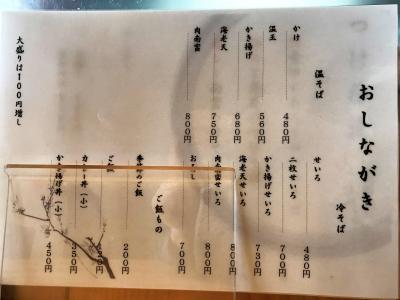 おしながき
温そば
かけ 480円
温玉 560円
かき揚げ 680円
海老天 750円
肉南蛮 800円
大盛りは100円増し
冷そば
せいろ 480円
二枚せいろ 700円
かき揚げせいろ 730円
海老天せいろ 800円
肉南蛮せいろ 800円
おろし 700円
ご飯もの
季節のご飯 200円
ご飯
カレー丼(小) 350円
かき揚げ丼(小) 450円